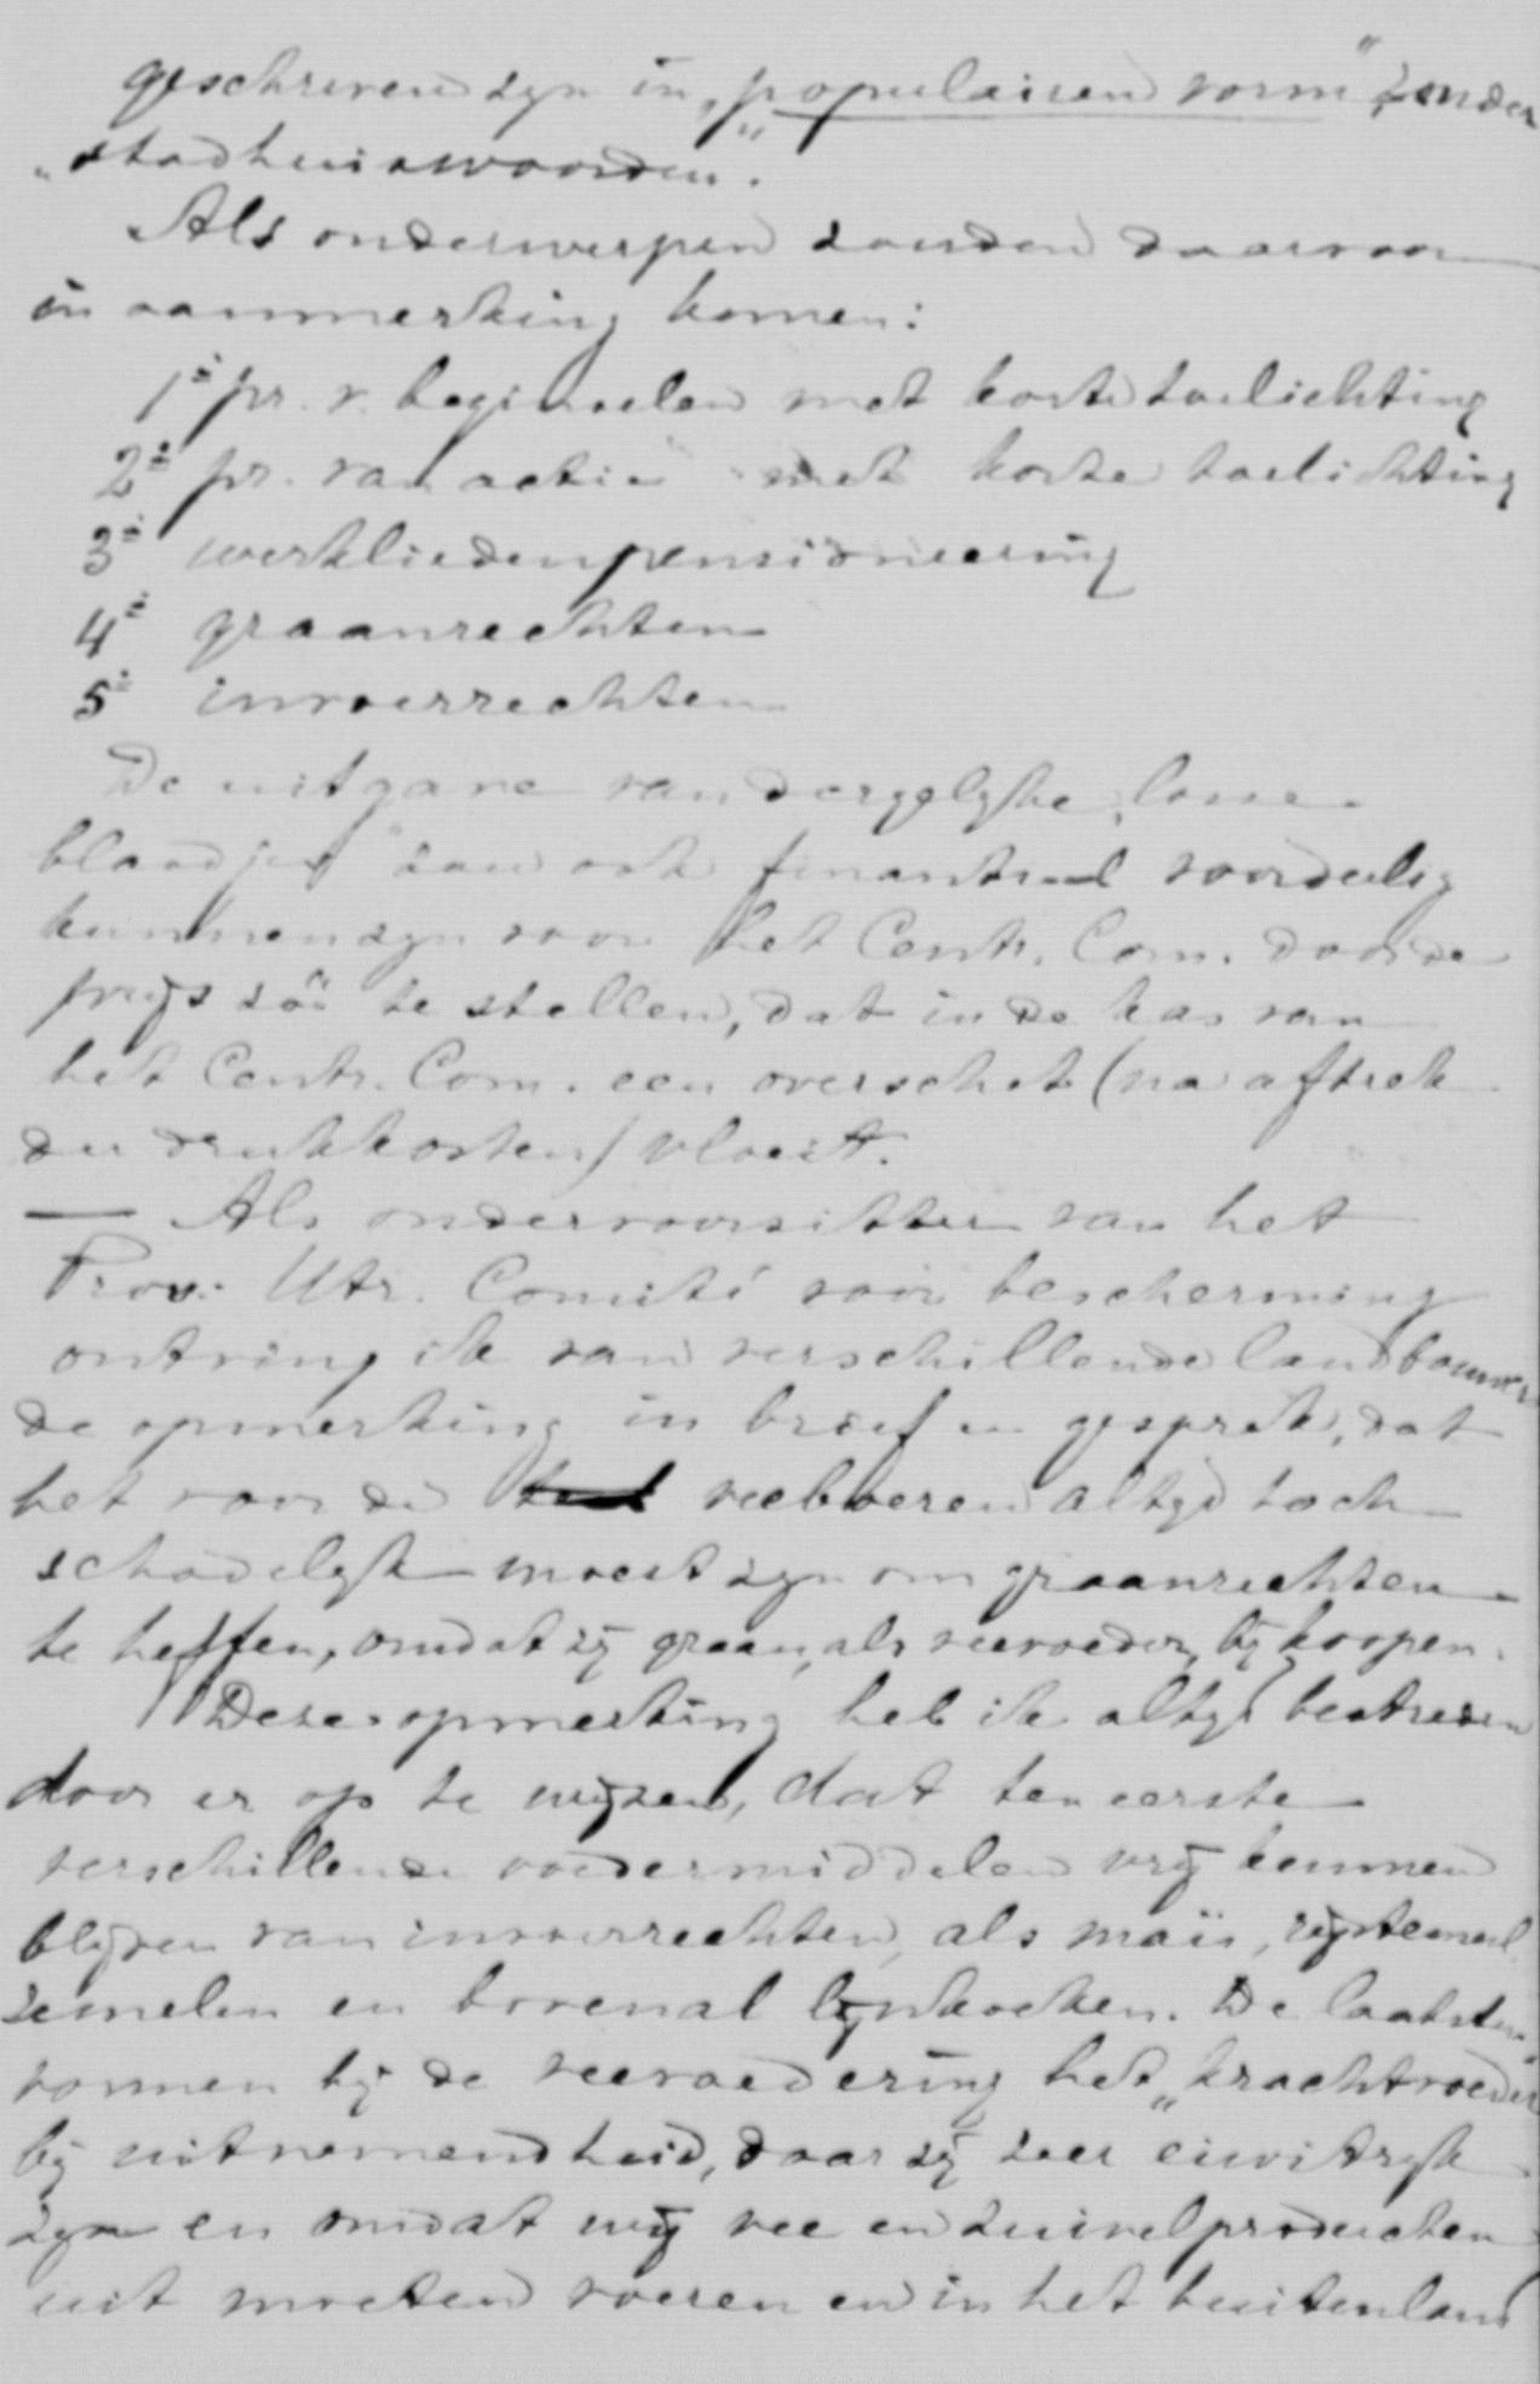 geschreven zijn in „populairen vorm" zonder
„stadhuiswoorden".
Als onderwerpen zouden daarvoor
in aanmerking komen:
1e pr. v. beginselen met korte toelichting
2e pr. van actie met korte toelichting
3e werkliedenpensioneering
4e graanrechten
5e invoerrechten
De uitgave van dergelijke „losse
blaadjes" zou ook financieel voordeelig
kunnen zijn voor het Centr. Com. door de
prijs zóó te stellen, dat in de kas van
het Centr. Com. een overschot (na aftrek
der drukkosten) vloeit.
— Als ondervoorzitter van het
Prov. Utr. Comité voor bescherming
ontving ik van verschillende landbouwers
de opmerking in brief en gesprek, dat
het voor de veeboeren altijd toch
schadelijk moest zijn om graanrechten
te heffen, omdat zij graan, als veevoeder, bij koopen.
Deze opmerking heb ik altijd bestreden
door er op te wijzen, dat ten eerste
verschillende voedermiddelen vrij kunnen
blijven van invoerrechten, als maïs, rijstemeel,
zemelen en bovenal lijnkoeken. De laatsten
vormen bij de veevoedering het „krachtvoeder"
bij uitnemendheid, daar zij zeer eiwitrijk
zijn en omdat wij vee en zuivelproducten
uit moeten voeren en in het buitenland